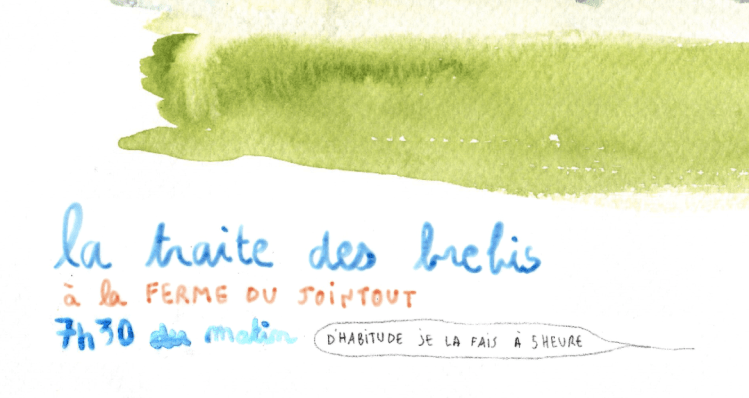 la traite des brebis
à la FERME DU JOiNTOUT
7h30 du matin
D'HABiTUDE JE LA FAiS À 5HEURE